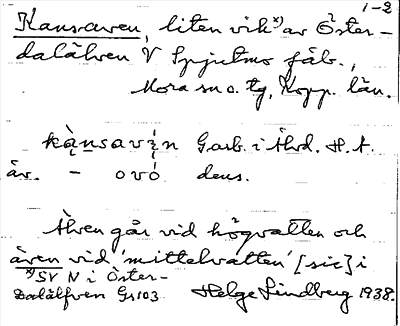 1-2
Kansaven, liten vik x) av Öster-
dalälven V Spjutmo fäb.,
Mora sn o. tg, Kopp. län.
kànsavìn Garb. i Ävd. H. A.
äv. - ovó dens.
Även går vid högvatten och
även vid 'mittelvatten' [sic] i
x) SV N i Öster-
Dalälfven Gs 103 Helge Lindberg 1938.